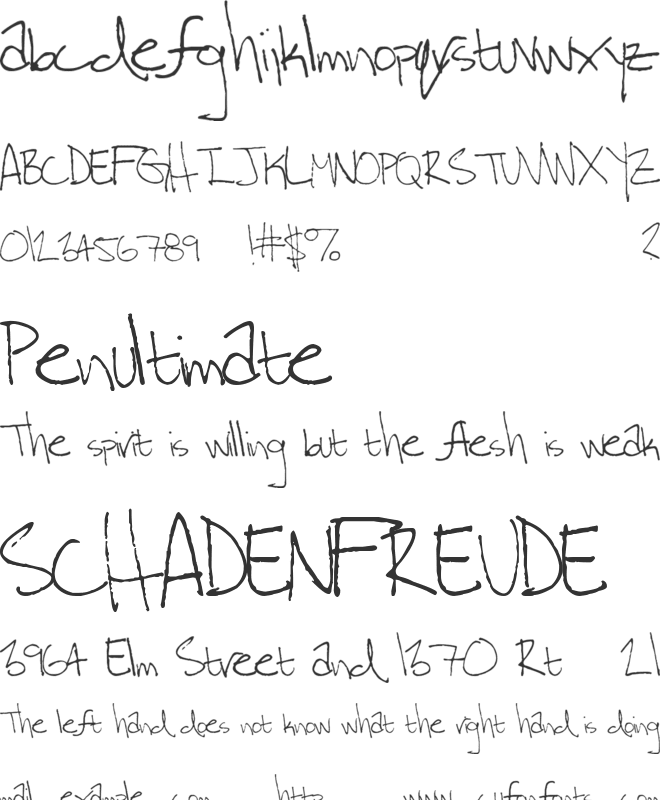 abcdefghijklmnopqrstuvwxyz
ABCDEFGHIJKLMNOPQRSTUVWXYZ
0123456789 !#$% ?
Penultimate
The spirit is willing but the flesh is weak
SCHADENFREUDE
3964 Elm Street and 1370 Rt 21
The left hand does not know what the right hand is doing
mail example com http www